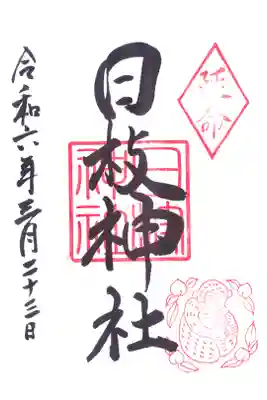 延命
日枝神社
令和六年三月二十三日